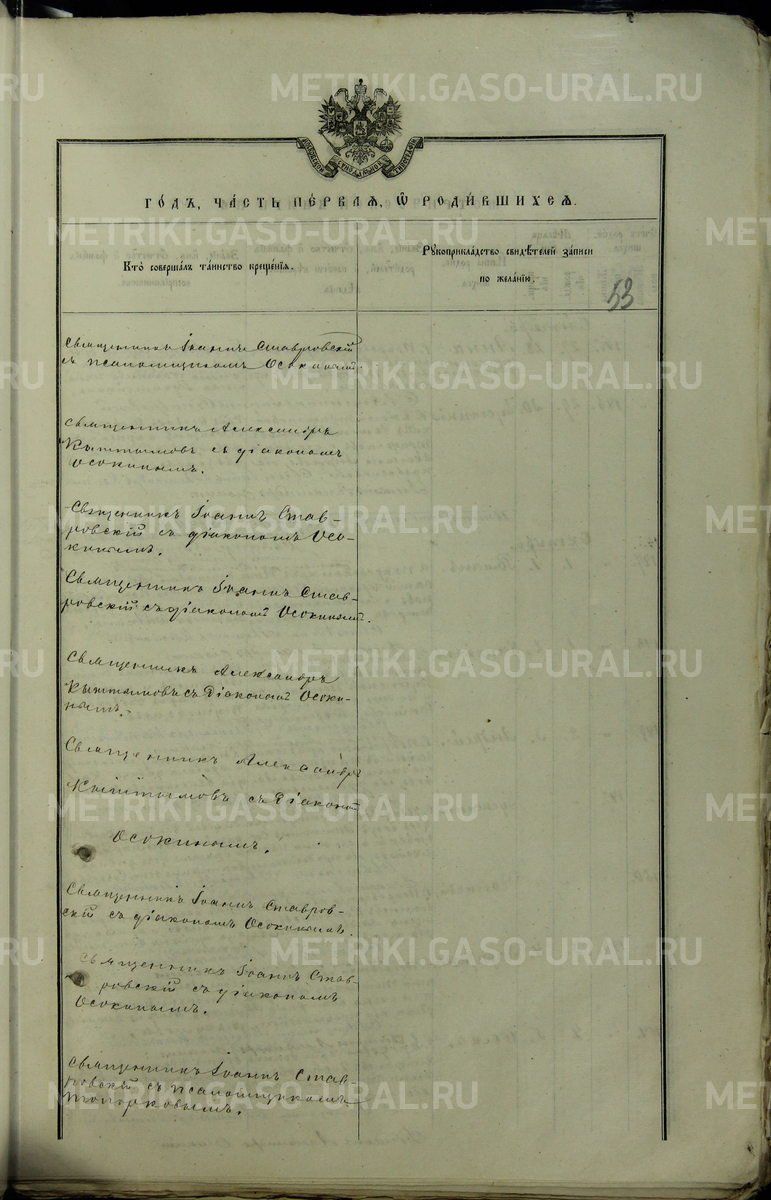 METRIKI.GASO-URAL.RU
ГО́ДЪ, ЧА́СТЬ ПЕ́РВАѦ, Ѡ҆ РОДИ́ВШИХСѦ.
Кто̀ соверша́лъ та́инство креще́нїѧ.
Рꙋкоприкла́дство свидѣ́телей за́писи
по жела́нїю.
53
Священникъ Іоаннъ Ставровскій
съ псаломщикомъ Осокинымъ.
Священникъ Александръ
Кыштымовъ съ діакономъ
Осокинымъ.
Священникъ Іоаннъ Став-
ровскій съ діакономъ Осо-
кинымъ.
Священникъ Іоаннъ Став-
ровскій съ діакономъ Осокинымъ.
Священникъ Александръ
Кыштымовъ съ діакономъ Осоки-
нымъ.
Священникъ Александръ
Кыштымовъ съ Діакономъ
Осокинымъ.
Священникъ Іоаннъ Ставров-
скій съ діакономъ Осокинымъ.
Священникъ Іоаннъ Став-
ровскій съ діакономъ
Осокинымъ.
Священникъ Іоаннъ Став-
ровскій съ псаломщикомъ
Топорковымъ.